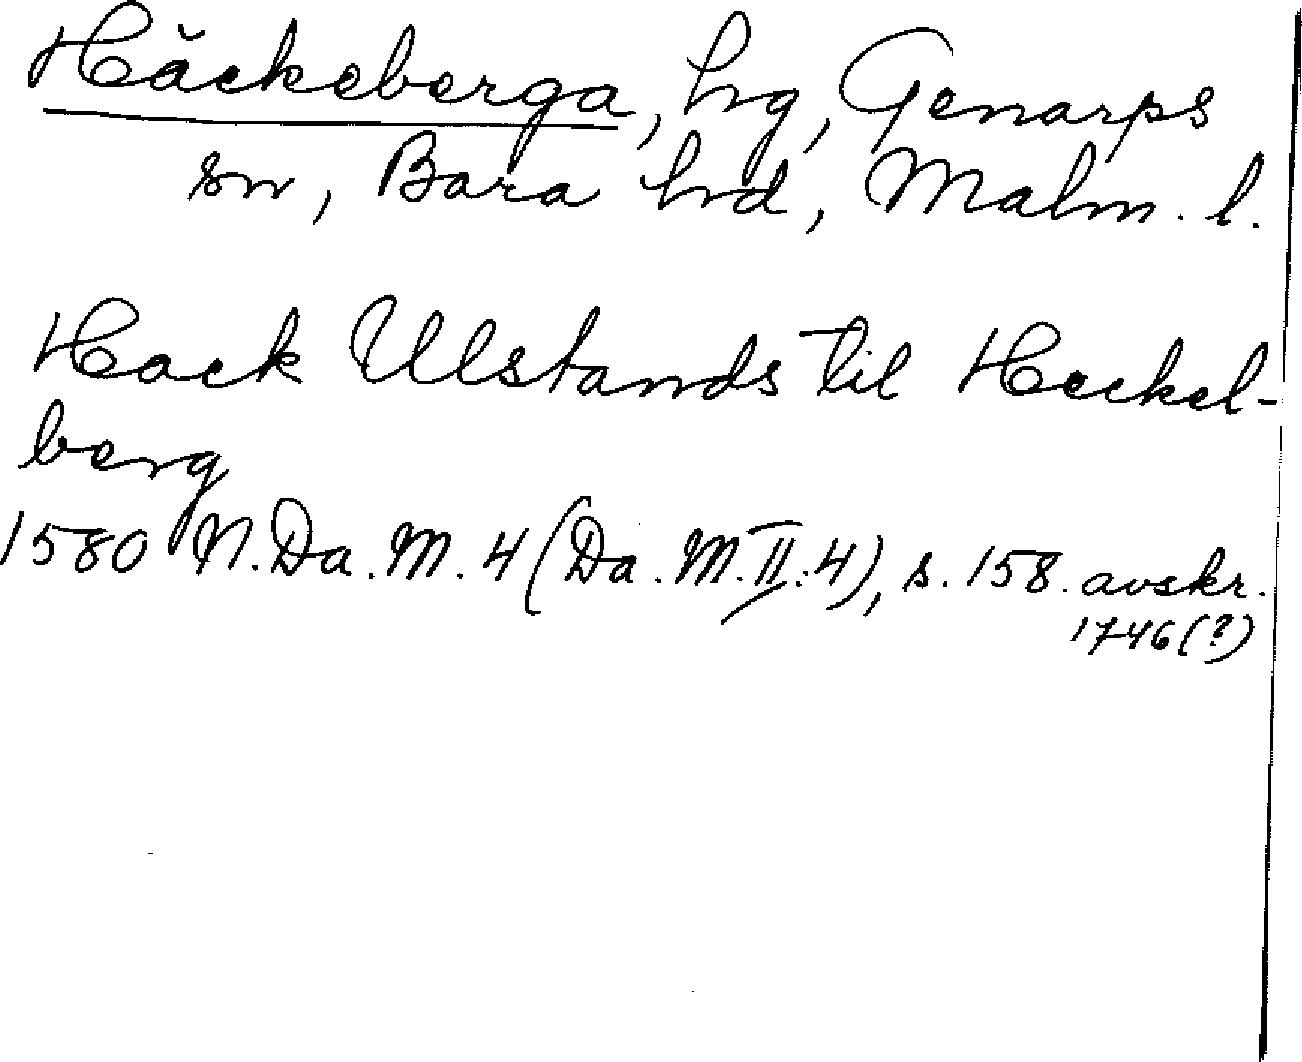 Häckeberga, hg, Genarps
sn, Bara hd, Malm. l.
Hack Ulstands til Heckel-
berg
1580 N. Da. M. 4 (Da. M. II:4), s. 158. avskr.
1746(?)